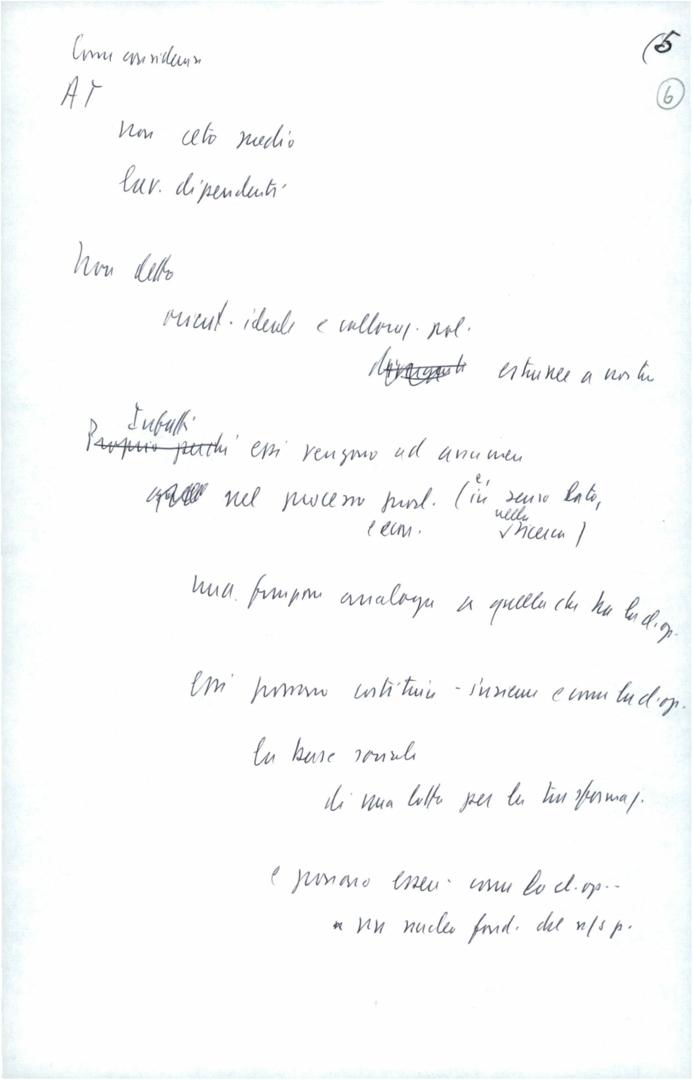 (5
6
Come considerare
A T
non ceto medio
lav. dipendenti
Non detto
orient. ideale e collocaz. pol.
estranee a nostre
Infatti
Proprio perché essi vengono ad assumere
nel processo prod. (è, in senso lato,
e econ. nella ricerca)
una funzione analoga a quella che ha la cl. op.
Essi possono costituire - insieme e come la cl. op.
la base sociale
di una lotta per la trasformaz.
e possono essere come la cl. op.
un nucleo fond. del n/s p.